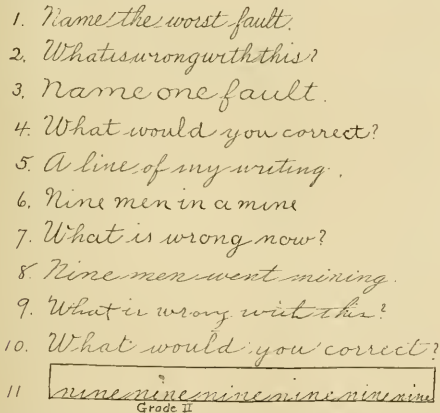 1. Name the worst fault.
2. Whatiswrongwiththis?
3. Name one fault.
4. What would you correct?
5. A line of my writing.
6. Nine men in a mine
7. What is wrong now?
8. Nine men went mining.
9. What is wrong with this?
10. What would you correct?
11 nine nine nine nine nine nine
Grade II